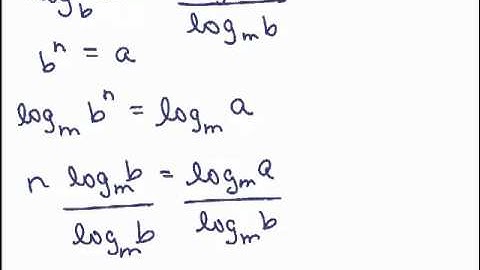 log_b
log_m b
b^n = a
log_m b^n = log_m a
n log_m b / log_m b = log_m a / log_m b